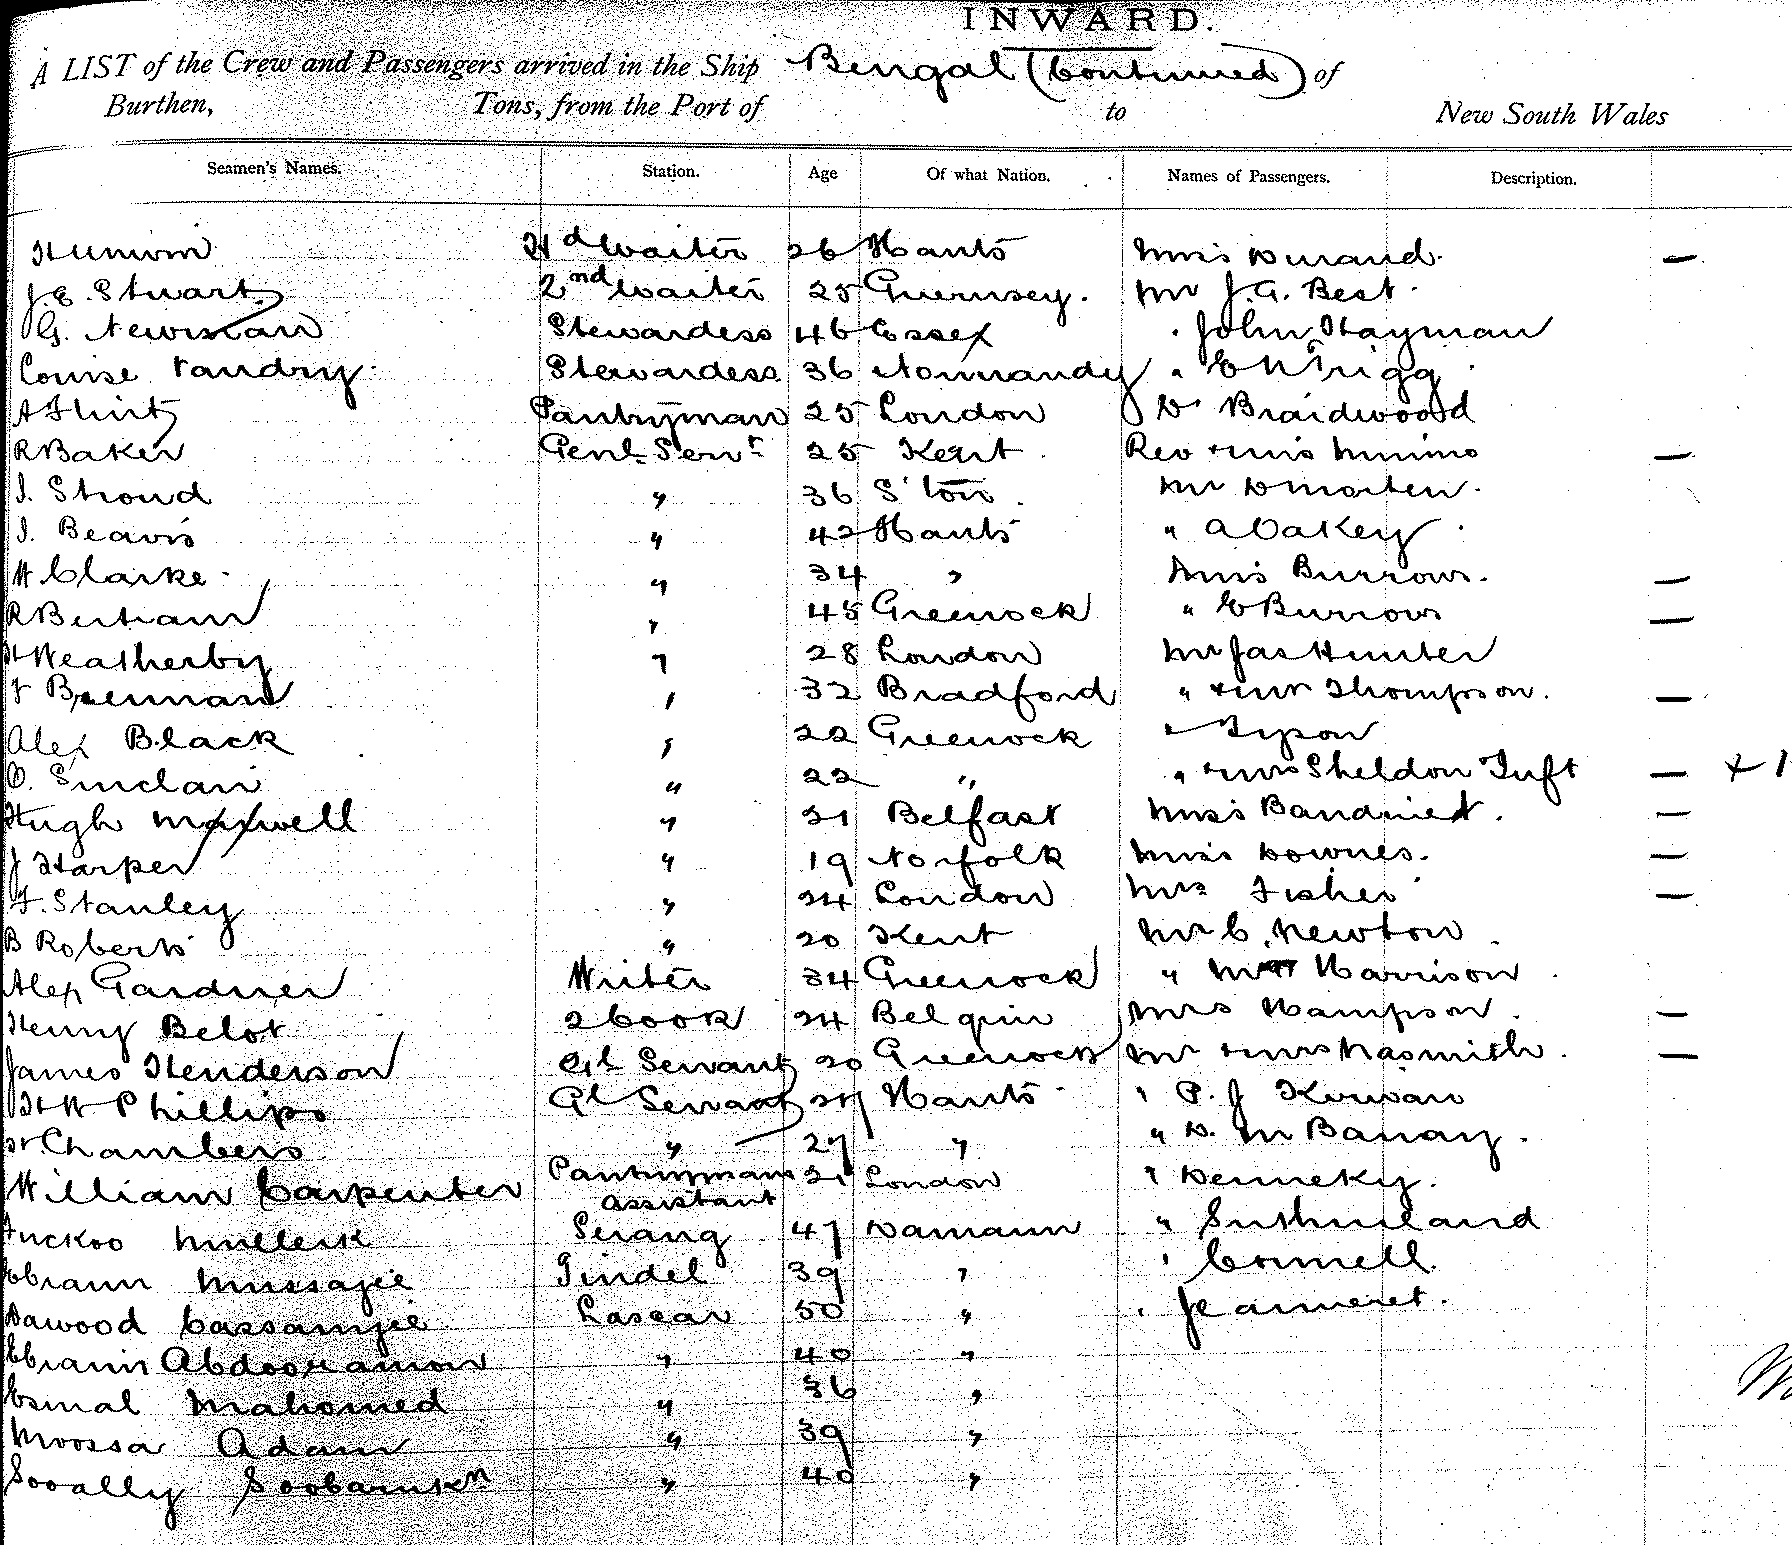 INWARD.
A LIST of the Crew and Passengers arrived in the Ship Bengal (Continued) of
Burthen, Tons, from the Port of to New South Wales
Seamen's Names. Station. Age Of what Nation. Names of Passengers. Description.
Hd Waiter 26 Hants Miss Durand —
J.E. Stuart 2nd Waiter 25 Guernsey. Mr J.G. Best
G. Newman Stewardess 46 Essex John Hayman
Louise Stewardess 36 Normandy " Trigg
A Flint Pantryman 25 London D Braidwood
R Baker Genl Servt 25 Kent Rev + Mrs —
J. Stroud " 36 S'ton Mr
J. Beavis " 42 Hants " A Oakey
W. Clarke " 34 " Miss Burrows. —
R Bertram " 45 Greenock " E Burrows —
H Weatherby " 28 London Mr Jas Hunter
J Brennan " 32 Bradford " + Mrs Thompson. —
Alex Black " 22 Greenock " Tyson
D. Sinclair " 22 " " + Mrs Sheldon Tuft — + 1
Hugh Maxwell " 21 Belfast Miss —
J Harper " 19 Norfolk Miss Downes. —
F. Stanley " 24 London Mrs Fisher —
B Roberts " 20 Kent Mr C. Newton
Alex Gardner Writer 34 Greenock " Harrison
Henry Belot 2 Cook 24 Belgium Mrs Hampson —
James Henderson Gl Servant 20 Greenock Mr + Mrs Nasmith —
H W Phillips Gl Servant 27 Hants " P. J Kirwan
Chambers " 27 " " D.
William Carpenter Pantrymans 21 London "
assistant
Serang 47 Damaun " Sutherland
Ebram Mussajee Tindel 39 " " Connell
Dawood Cassamjee Lascar 50 " " Jeanneret.
Ebram Abdooramon " 40 "
Esmal Mahomed " 36 "
Moossa Adam " 39 "
" 40 "